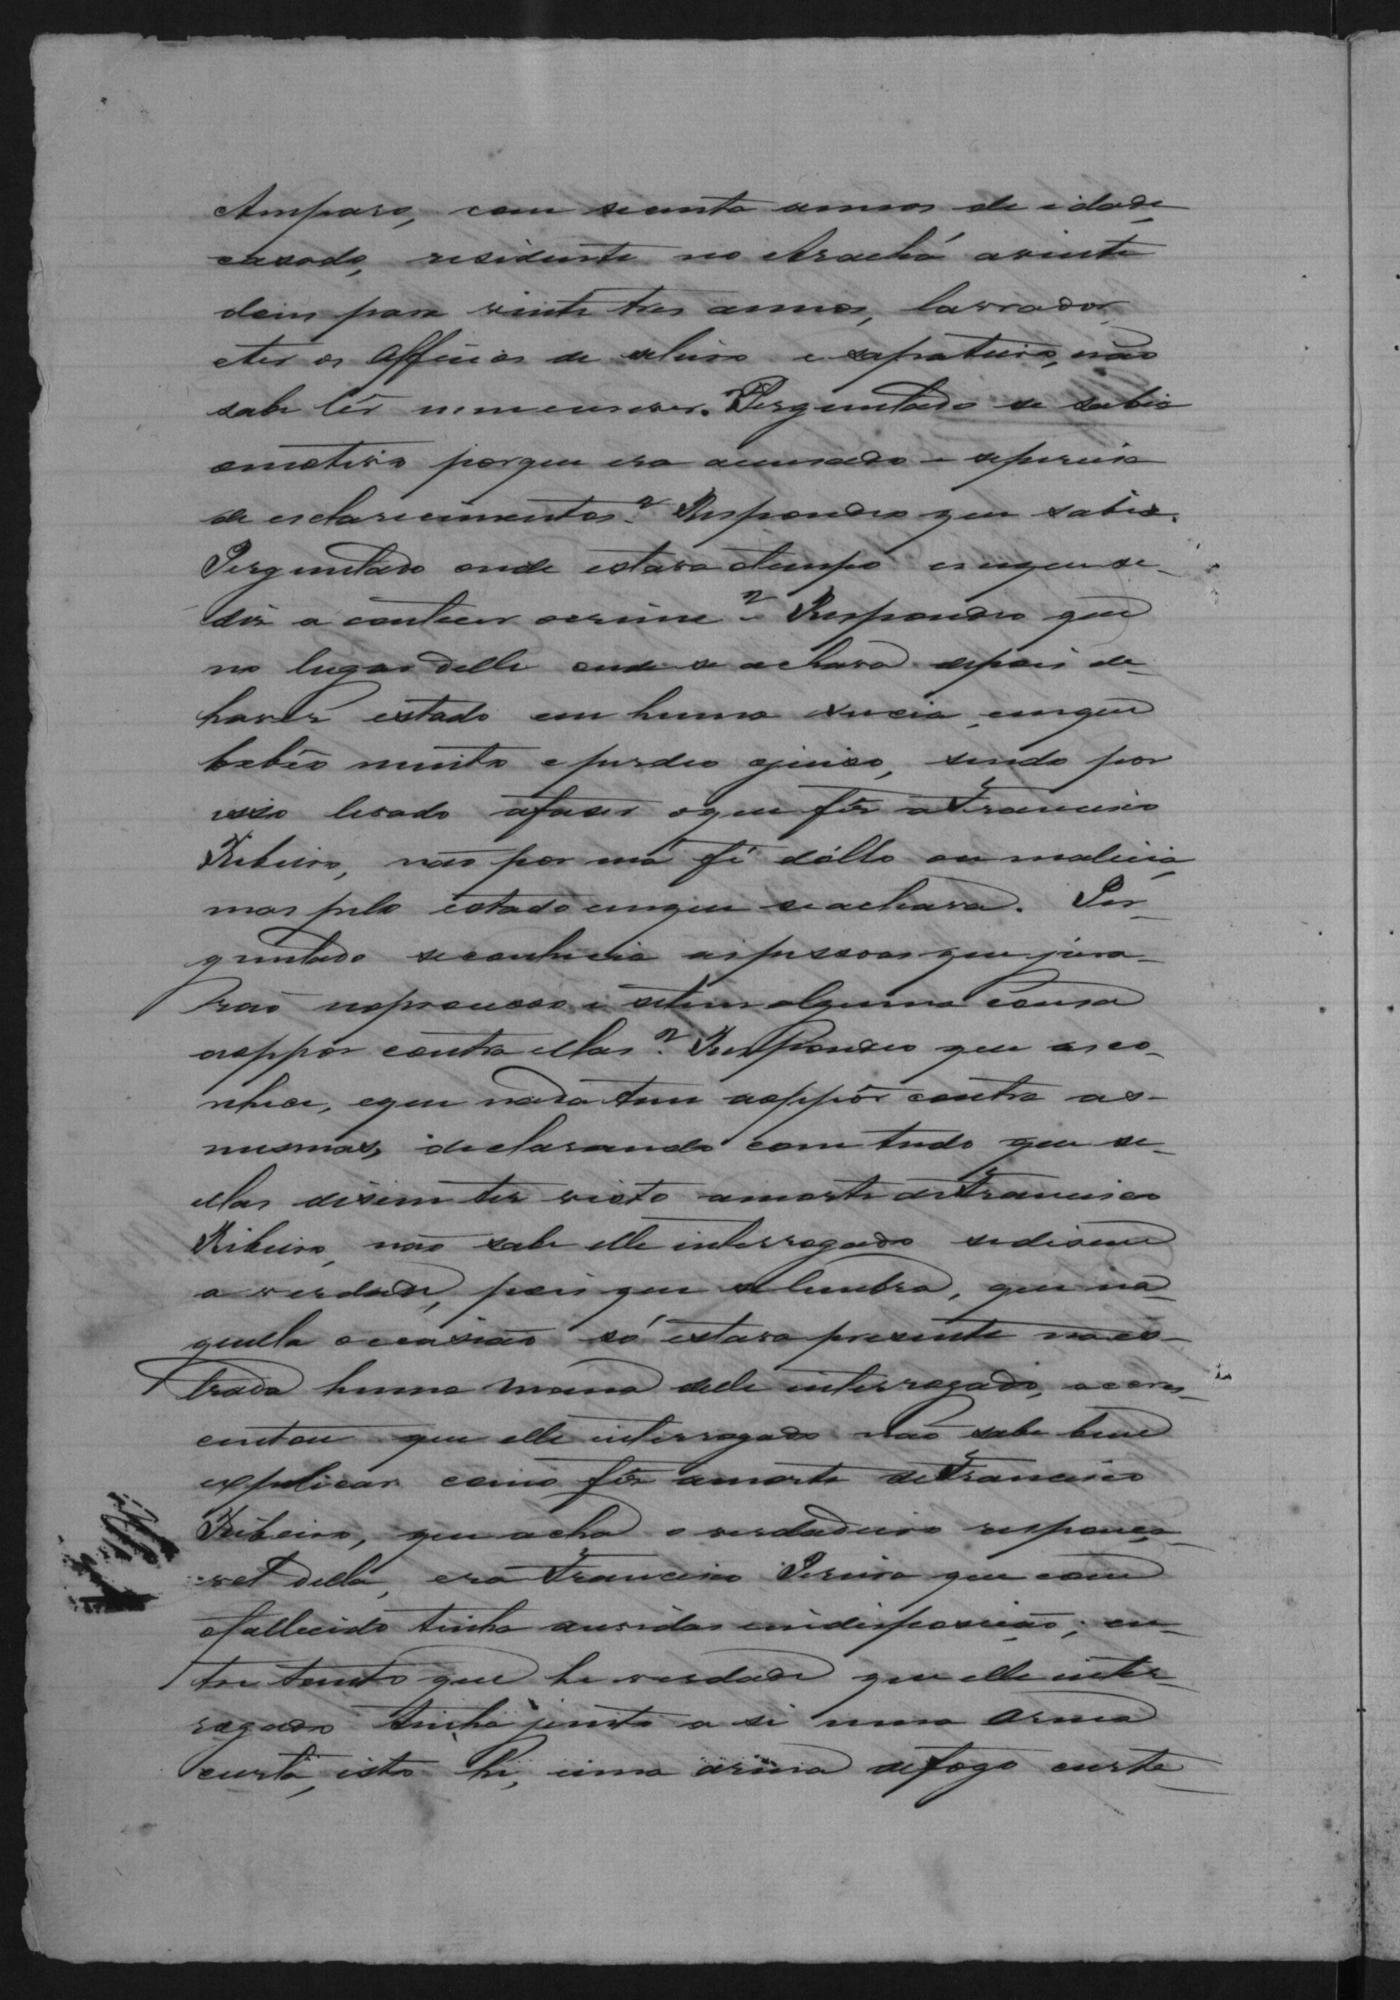 Amparo, com secenta annos de idade,
casado, residente no Arachá a vinte
dois para vinte tres annos, lavrador
e ter os Officios de seleiro e sapateiro, não
sabe lêr nem escrever. Perguntado se sabia
o motivo porque era accusado e se precisa
de esclarecimentos? Respondeo que sabia.
Perguntado onde estava o tempo em que se
diz acontecer o crime? Respondeo que
no lugar delle onde se achava depois de
haver estado em huma sucia, em que
bebêo muito e perdeo o juiso, sendo por
isso levado a faser o que fêz a Francisco
Ribeiro, não por má fé dóllo ou malicia,
mas pelo estado em que se achava. Per-
guntado se conhecia as pessoas que jura-
rão no processo e se tem alguma cousa
a oppôr contra ellas? Respondeo que as co-
nhece, e que nada tem a oppôr contra as
mesmas, declarando com tudo que se
ellas disem ter visto a morte de Francisco
Ribeiro, não sabe elle interrogado se disem
a verdade, pois que se lembra, que na
quella occasião só estava presente na es-
trada huma mana delle interrogado, acres-
centou que elle interrogado não sabe bem
explicar como fôr a morte de Francisco
Ribeiro, que acha o verdadeiro responça-
vel della, era Francisco Pereira que com
o fallecido tinha avidas indisposição; en-
tre tanto que he verdade que elle inter-
rogado tinha junto a si uma arma
curta, isto hé, uma arma de fogo curta